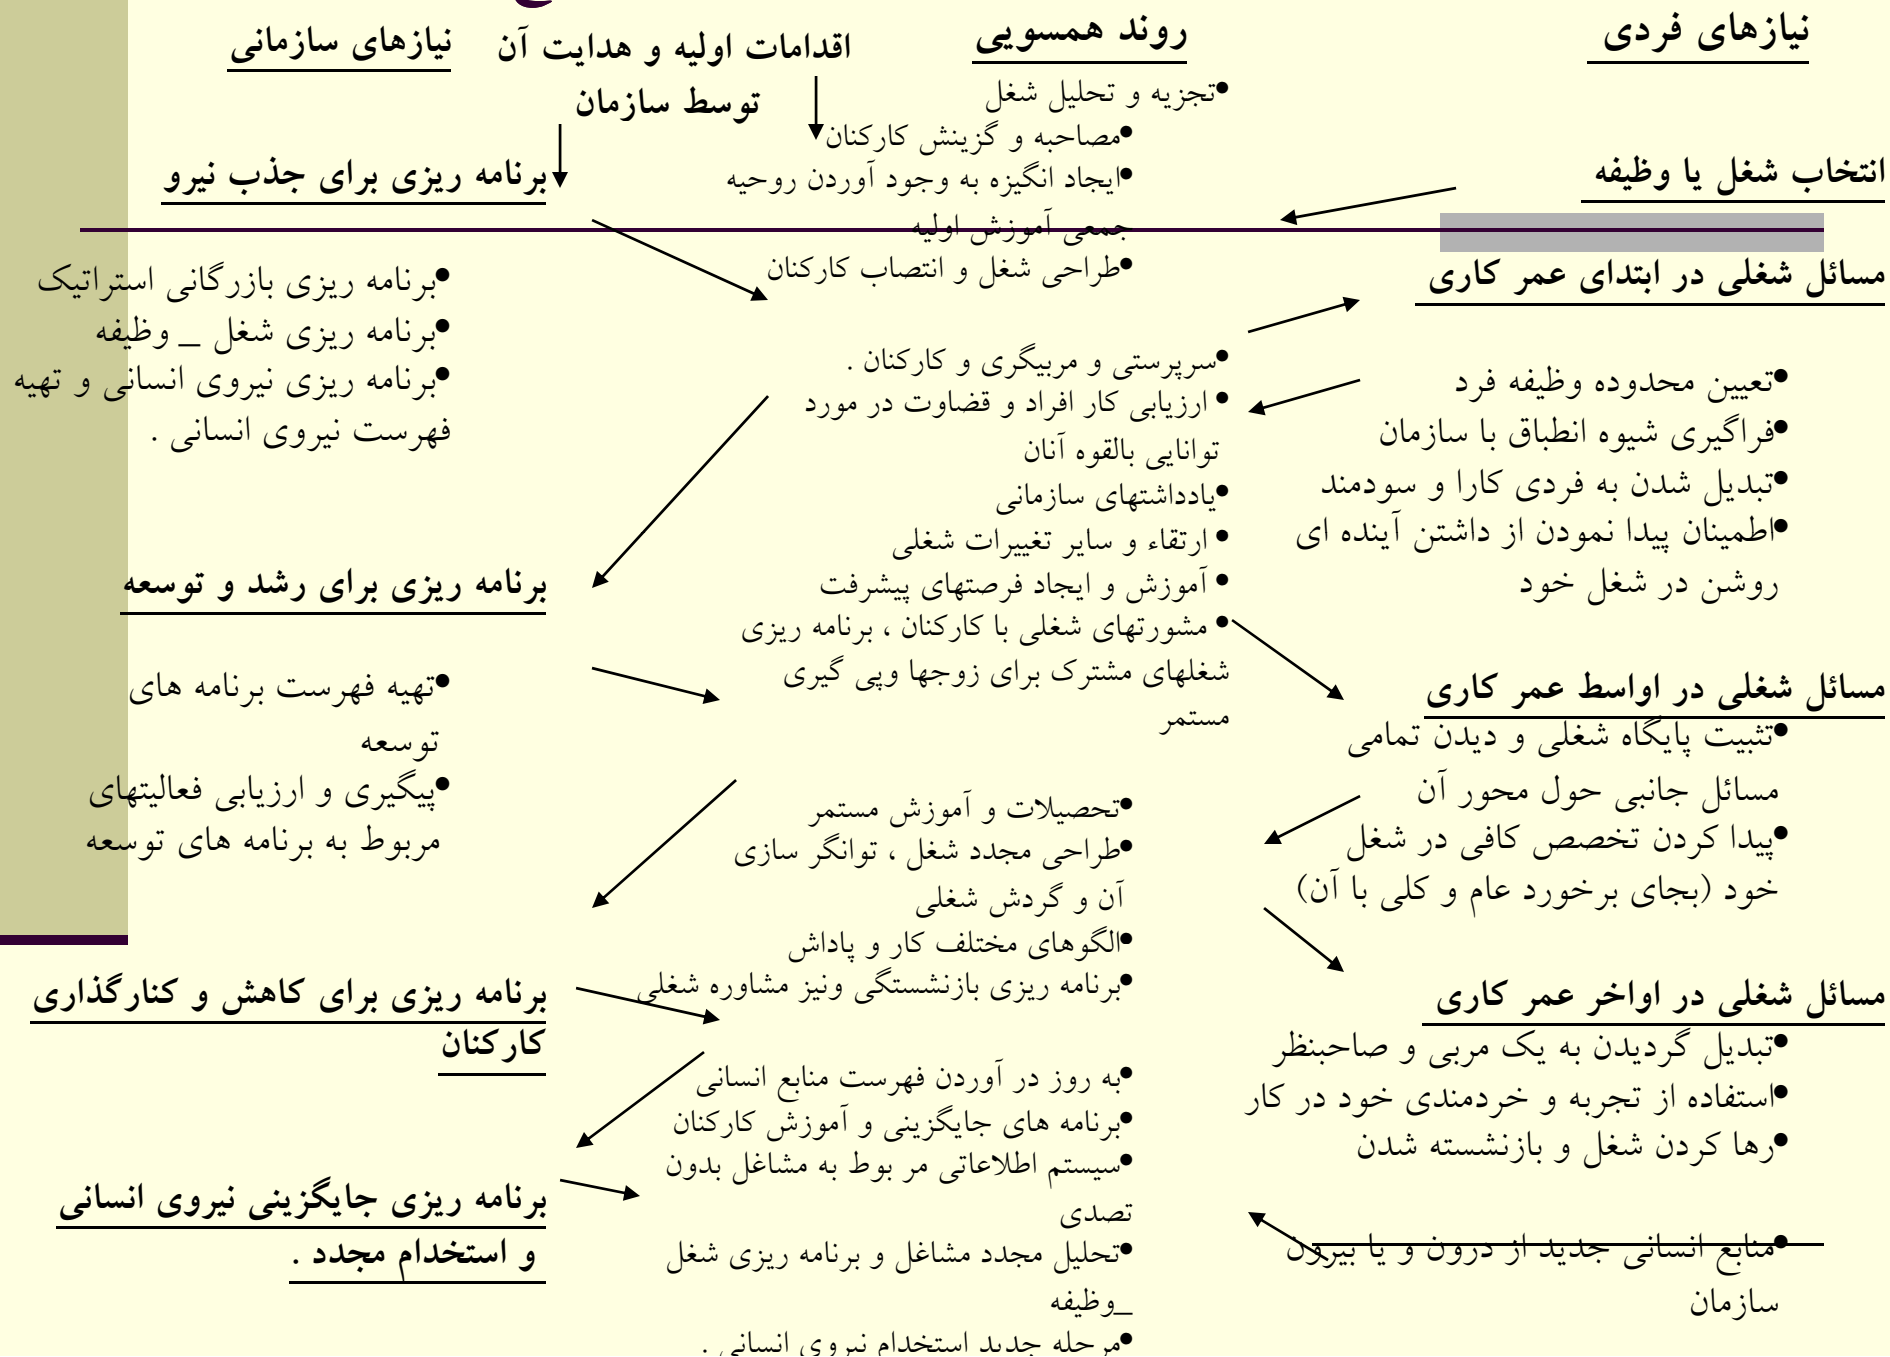 نیازهای فردی
انتخاب شغل یا وظیفه
مسائل شغلی در ابتدای عمر کاری
•تعیین محدوده وظیفه فرد
•فراگیری شیوه انطباق با سازمان
•تبدیل شدن به فردی کارا و سودمند
•اطمینان پیدا نمودن از داشتن آینده ای
روشن در شغل خود
مسائل شغلی در اواسط عمر کاری
•تثبیت پایگاه شغلی و دیدن تمامی
مسائل جانبی حول محور آن
•پیدا کردن تخصص کافی در شغل
خود (بجای برخورد عام و کلی با آن)
مسائل شغلی در اواخر عمر کاری
•تبدیل گردیدن به یک مربی و صاحبنظر
•استفاده از تجربه و خردمندی خود در کار
•رها کردن شغل و بازنشسته شدن
•منابع انسانی جدید از درون و یا بیرون
سازمان
روند همسویی
•تجزیه و تحلیل شغل
•مصاحبه و گزینش کارکنان
•ایجاد انگیزه به وجود آوردن روحیه
جمعی آموزش اولیه
•طراحی شغل و انتصاب کارکنان
•سرپرستی و مربیگری و کارکنان .
• ارزیابی کار افراد و قضاوت در مورد
توانایی بالقوه آنان
•یادداشتهای سازمانی
• ارتقاء و سایر تغییرات شغلی
• آموزش و ایجاد فرصتهای پیشرفت
• مشورتهای شغلی با کارکنان ، برنامه ریزی
شغلهای مشترک برای زوجها وپی گیری
مستمر
•تحصیلات و آموزش مستمر
•طراحی مجدد شغل ، توانگر سازی
آن و گردش شغلی
•الگوهای مختلف کار و پاداش
•برنامه ریزی بازنشستگی ونیز مشاوره شغلی
•به روز در آوردن فهرست منابع انسانی
•برنامه های جایگزینی و آموزش کارکنان
•سیستم اطلاعاتی مر بوط به مشاغل بدون
تصدی
•تحلیل مجدد مشاغل و برنامه ریزی شغل
_وظیفه
•مرحله جدید استخدام نیروی انسانی .
اقدامات اولیه و هدایت آن
توسط سازمان
نیازهای سازمانی
برنامه ریزی برای جذب نیرو
•برنامه ریزی بازرگانی استراتیک
•برنامه ریزی شغل _ وظیفه
•برنامه ریزی نیروی انسانی و تهیه
فهرست نیروی انسانی .
برنامه ریزی برای رشد و توسعه
•تهیه فهرست برنامه های
توسعه
•پیگیری و ارزیابی فعالیتهای
مربوط به برنامه های توسعه
برنامه ریزی برای کاهش و کنارگذاری
کارکنان
برنامه ریزی جایگزینی نیروی انسانی
و استخدام مجدد .